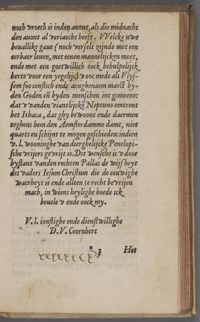 noch vroech is inden avont, als die midnacht
den avont al veriaecht heeft. VVelcke u we
beuallike gaue (noch verselt zijnde met een
eerbaer leuen, met eenen mannelijcken moet,
ende met een goetwillich oock behulpelijck
herte voor een yegelijc) v ooc mede als Vlys-
sem soo ionstich ende aenghenaem maect by-
den Goden en byden menschen int gemeene:
dat v vanden viantlijcke Neptunus omtrent
het Ithaca, dat ghy bewoont ende daermen
teghens hem den Aemsterdamme damt, niet
quaets en schijnt te mogen geschieden: indien
v. l. wooninghe van dierghelijcke Penelopi-
sche vrijers gevrijt is. Dit wensche ic v door
bystant vanden rechten Pallas de wijsheyt
des vaders Iesum Christum die de eeuwighe
waerheyt is ende alleen te recht bevrijen
mach, in wiens heylighe hoede ick
beuele v ende oock my.
V. l. ionstighe ende dienstwillighe
D. V. Coornhert
Het